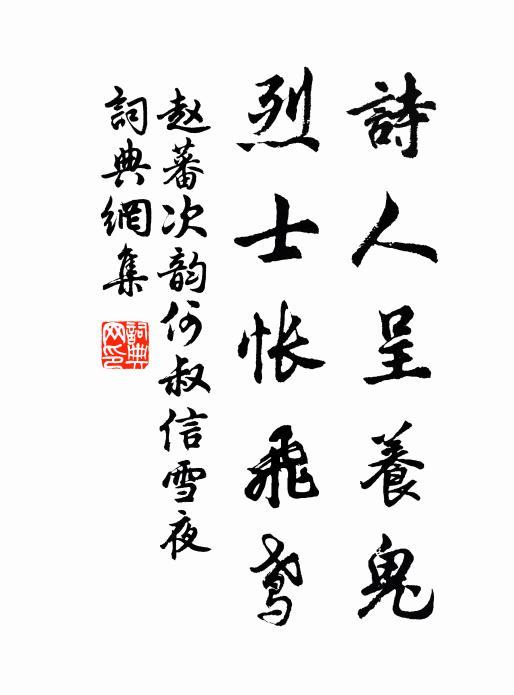 詩人呈養鬼
烈士悵飛鳶
赵蕃次韵何叔信雪夜
詞典網集
詞典網印